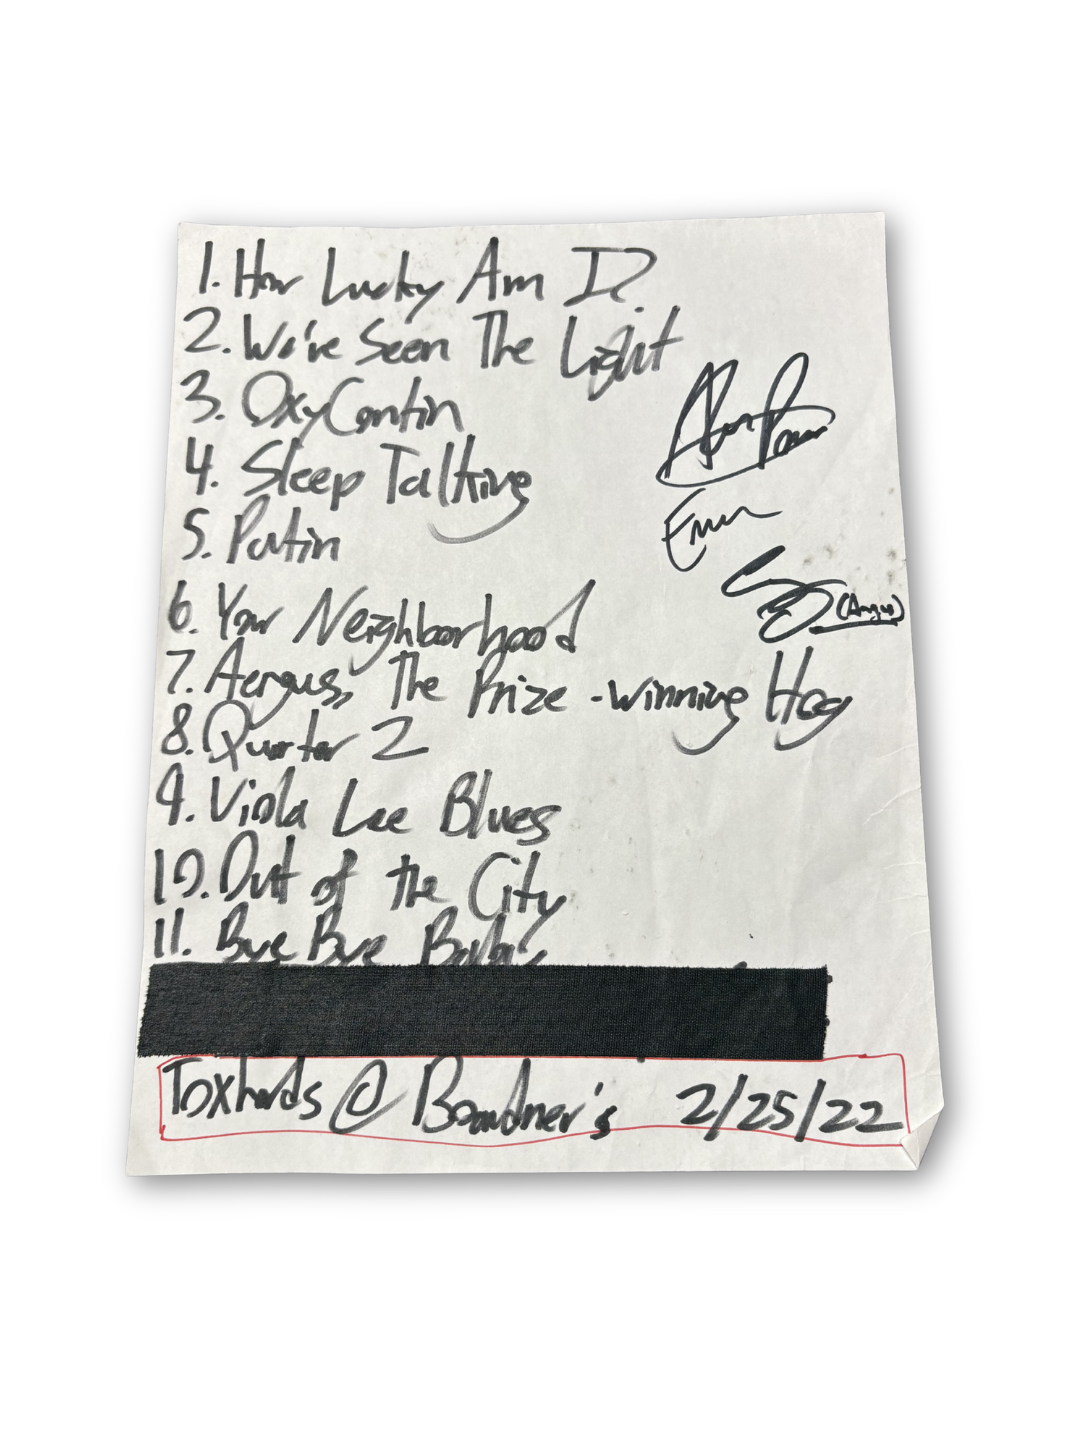 1. How Lucky Am I?
2. We've Seen The Light
3. OxyContin
4. Sleep Talking
5. Putin
6. Your Neighborhood
7. Aengus, The Prize-winning Hog
8. Quarter 2
9. Viola Lee Blues
10. Out of the City
11. Bye Bye
(Angus)
Toxhards @ Boardner's 2/25/22